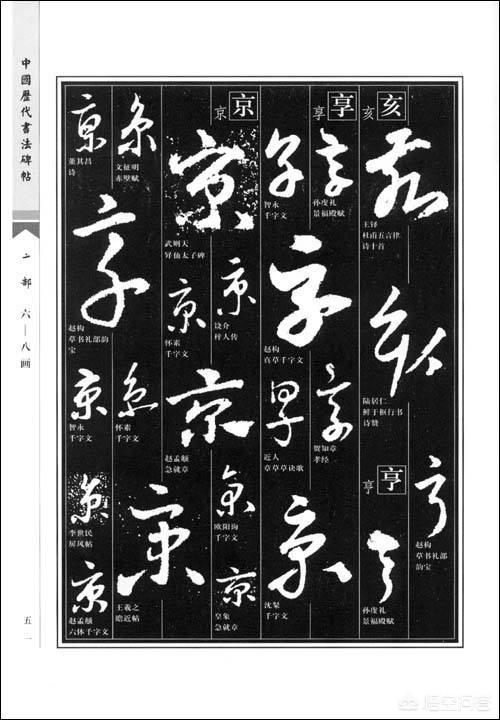 中國歷代書法碑帖
亠部 六—八画
五一
亥
亥
亥
王铎
杜甫五言律
诗十首
亥
陆居仁
鲜于枢行书
诗赞
亨
亨
亨
孙虔礼
景福殿赋
亨
赵构
草书礼部
韵宝
享
享
享
孙虔礼
景福殿赋
享
贺知章
孝经
享
智永
千字文
享
赵构
真草千字文
享
近人
章草草诀歌
京
沈粲
千字文
京
京
京
武则天
昇仙太子碑
京
饶介
梓人传
京
怀素
千字文
京
赵孟頫
急就章
京
欧阳询
千字文
京
皇象
急就章
京
文征明
赤壁赋
京
怀素
千字文
京
王羲之
瞻近帖
京
董其昌
诗
享
赵构
草书礼部韵
宝
京
智永
千字文
京
李世民
屏风帖
京
赵孟頫
六体千字文
悟空问答